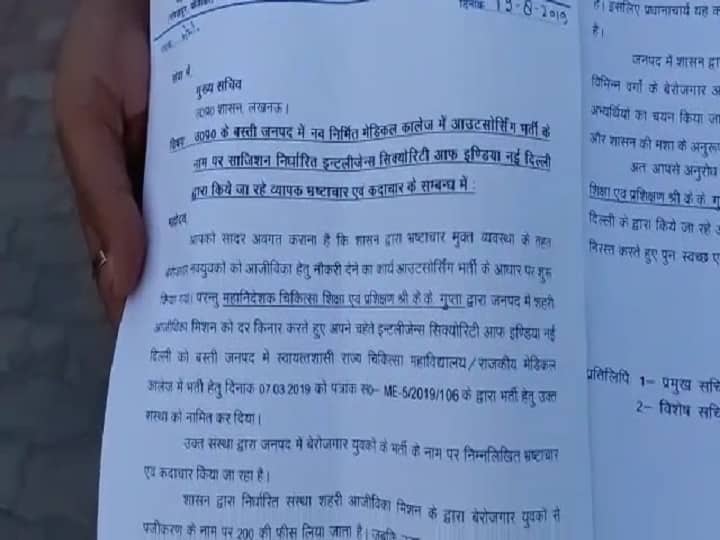 दिनांक 15-6-2019
सेवा में,
मुख्य सचिव
उ0प्र0 शासन, लखनऊ।
विषयः उ0प्र0 के बस्ती जनपद में नव निर्मित मेडिकल कालेज में आउटसोर्सिंग भर्ती के
नाम पर साजिशन निर्धारित इन्टलीजेन्स सिक्योरिटी आफ इण्डिया नई दिल्ली
द्वारा किये जा रहे व्यापक भ्रष्टाचार एवं कदाचार के सम्बन्ध में :
महोदय,
आपको सादर अवगत कराना है कि शासन द्वारा भ्रष्टाचार मुक्त व्यवस्था के तहत
बेरोजगार नवयुवको को आजीविका हेतु नौकरी देने का कार्य आउटसोर्सिंग भर्ती के आधार पर शुरू
किया गया। परन्तु महानिदेशक चिकित्सा शिक्षा एवं प्रशिक्षण श्री के0के0 गुप्ता द्वारा जनपद में शहरी
आजीविका मिशन को दर किनार करते हुए अपने चहेते इन्टलीजेन्स सिक्योरिटी आफ इण्डिया नई
दिल्ली को बस्ती जनपद में स्वायत्तशासी राज्य चिकित्सा महाविद्यालय/राजकीय मेडिकल
कालेज में भर्ती हेतु दिनांक 07.03.2019 को पत्रांक स0- ME-5/2019/106 के द्वारा भर्ती हेतु उक्त
संस्था को नामित कर दिया।
उक्त संस्था द्वारा जनपद में बेरोजगार युवको के भर्ती के नाम पर निम्नलिखित भ्रष्टाचार
एवं कदाचार किया जा रहा है।
शासन द्वारा निर्धारित संस्था शहरी आजीविका मिशन के द्वारा बेरोजगार युवको से
पंजीकरण के नाम पर 200 की फीस लिया जाता है। जबकि
है। इसलिए प्रधानाचार्य यह
है।
जनपद में शासन
विभिन्न वर्गो के बेरोजगार
अभ्यर्थियों का चयन किया जा
और शासन की मंशा के अनुरूप
अतः आपसे अनुरोध
शिक्षा एवं प्रशिक्षण श्री के0के0
दिल्ली के द्वारा किये जा रहे
निरस्त करते हुए पुनः स्वच्छ
प्रतिलिपि 1- प्रमुख
2- विशेष